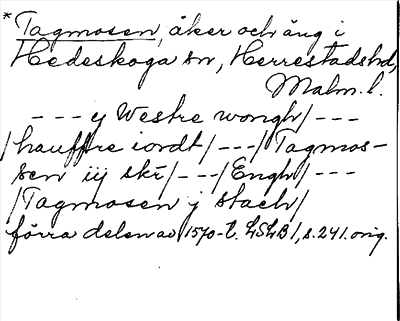 * Tagmosen, åker och äng i
Hedeskoga sn, Herrestads hd,
Malm. l.
- - - y Westre wongh/ - - -
/hauffre iordt/ - - -/Tagmos-
sen iij skr/ - - -/Engh/ - - -
/Tagmosen j stach/
förra delen av 1570-t. LSLB 1, s. 241. orig.